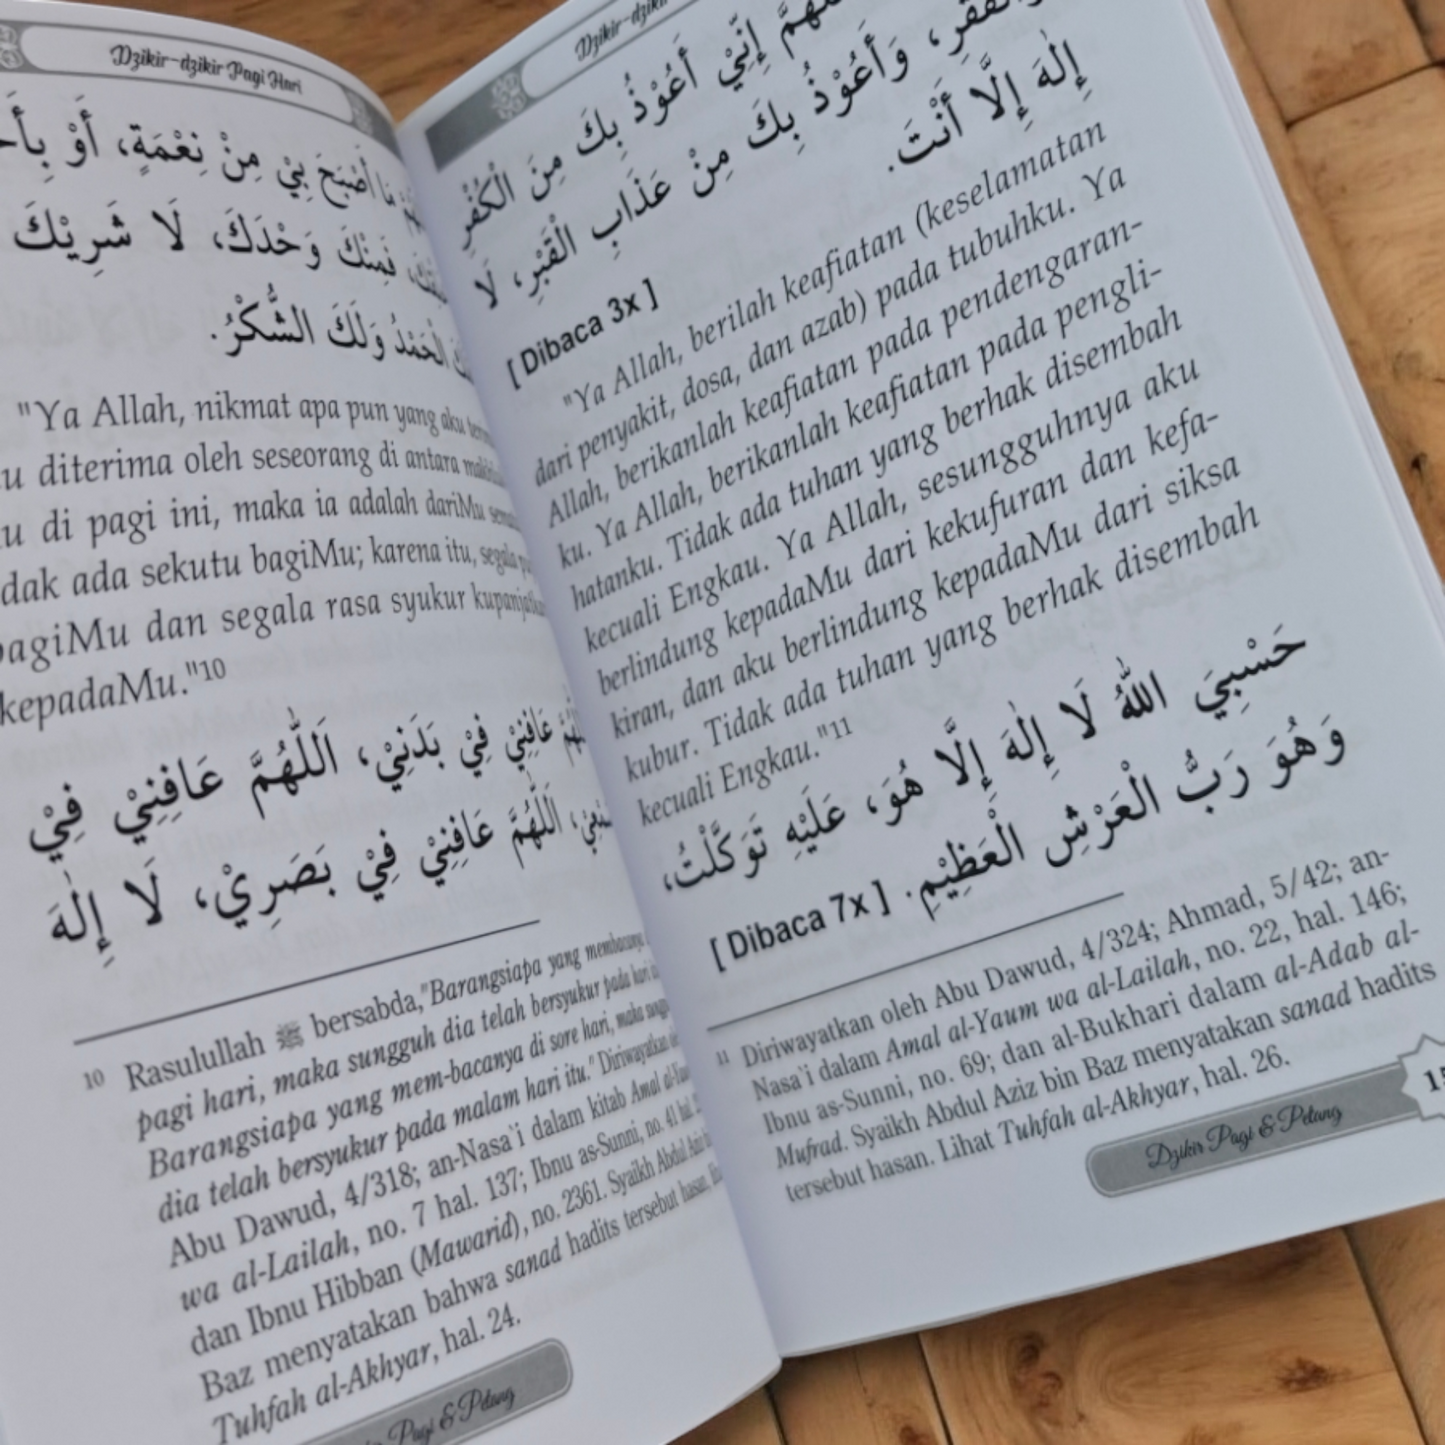 Dzikir-dzikir Pagi Hari
مَا أَصْبَحَ بِيْ مِنْ نِعْمَةٍ، أَوْ
فَمِنْكَ وَحْدَكَ، لَا شَرِيْكَ
الْحَمْدُ وَلَكَ الشُّكْرُ.
"Ya Allah, nikmat apa pun yang aku
diterima oleh seseorang di antara
di pagi ini, maka ia adalah dariMu
ada sekutu bagiMu; karena itu, segala
bagiMu dan segala rasa syukur
kepadaMu."10
عَافِنِيْ فِيْ بَدَنِيْ، اَللّٰهُمَّ عَافِنِيْ فِيْ
اَللّٰهُمَّ عَافِنِيْ فِيْ بَصَرِيْ، لَا إِلٰهَ
10 Rasulullah ﷺ bersabda,"Barangsiapa yang membacanya
pagi hari, maka sungguh dia telah bersyukur pada hari
Barangsiapa yang mem-bacanya di sore hari, maka
dia telah bersyukur pada malam hari itu." Diriwayatkan
Abu Dawud, 4/318; an-Nasa`i dalam kitab Amal
wa al-Lailah, no. 7 hal. 137; Ibnu as-Sunni, no. 41
dan Ibnu Hibban (Mawarid), no. 2361. Syaikh Abdul Aziz
Baz menyatakan bahwa sanad hadits tersebut hasan.
Tuhfah al-Akhyar, hal. 24.
Pagi & Petang
إِنِّيْ أَعُوْذُ بِكَ مِنَ الْكُفْرِ
وَأَعُوْذُ بِكَ مِنْ عَذَابِ الْقَبْرِ، لَا
إِلٰهَ إِلَّا أَنْتَ.
[ Dibaca 3x ]
"Ya Allah, berilah keafiatan (keselamatan
dari penyakit, dosa, dan azab) pada tubuhku. Ya
Allah, berikanlah keafiatan pada pendengaran-
ku. Ya Allah, berikanlah keafiatan pada pengli-
hatanku. Tidak ada tuhan yang berhak disembah
kecuali Engkau. Ya Allah, sesungguhnya aku
berlindung kepadaMu dari kekufuran dan kefa-
kiran, dan aku berlindung kepadaMu dari siksa
kubur. Tidak ada tuhan yang berhak disembah
kecuali Engkau."11
حَسْبِيَ اللهُ لَا إِلٰهَ إِلَّا هُوَ، عَلَيْهِ تَوَكَّلْتُ،
وَهُوَ رَبُّ الْعَرْشِ الْعَظِيْمِ. [ Dibaca 7x ]
11 Diriwayatkan oleh Abu Dawud, 4/324; Ahmad, 5/42; an-
Nasa`i dalam Amal al-Yaum wa al-Lailah, no. 22, hal. 146;
Ibnu as-Sunni, no. 69; dan al-Bukhari dalam al-Adab al-
Mufrad. Syaikh Abdul Aziz bin Baz menyatakan sanad hadits
tersebut hasan. Lihat Tuhfah al-Akhyar, hal. 26.
Dzikir Pagi & Petang